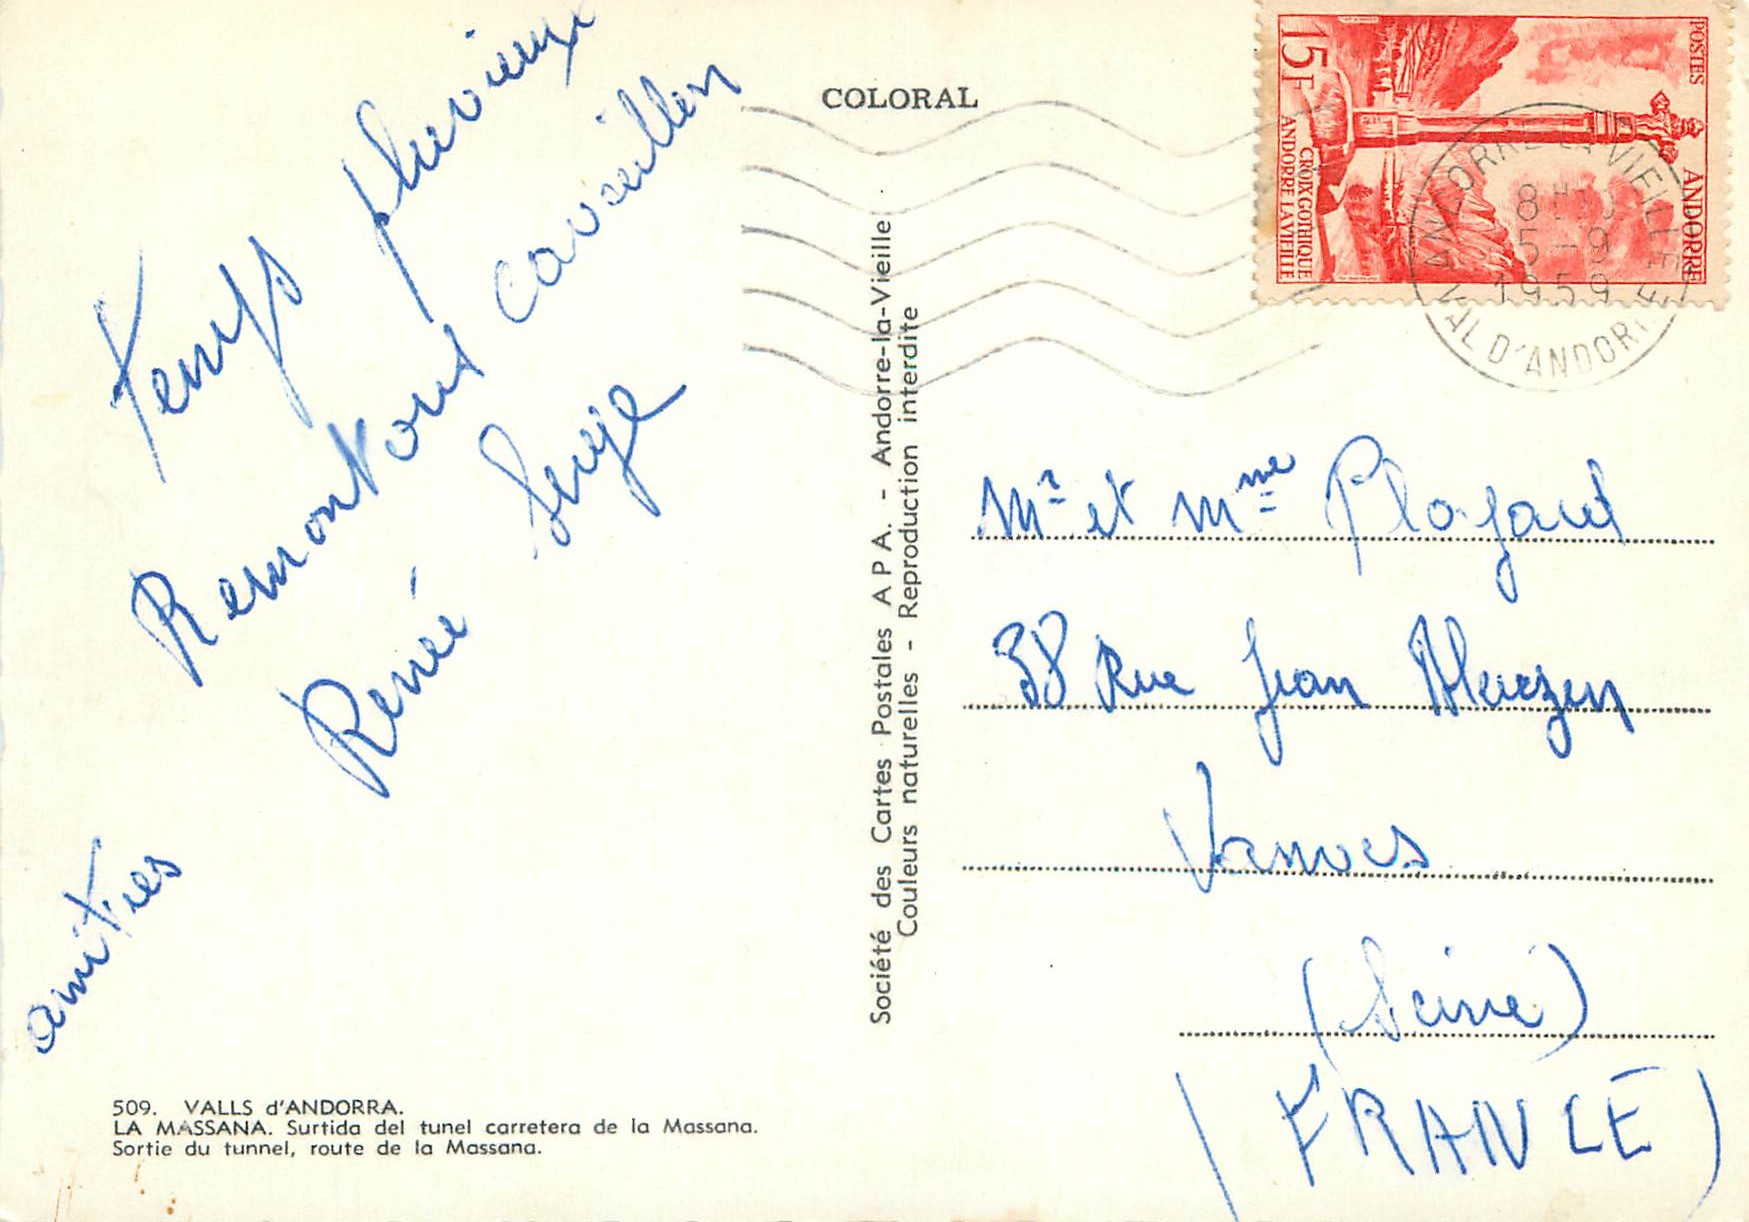 COLORAL
Temps pluvieux
Remontons Cavaillon
Renée Serge
amitiés
509. VALLS d'ANDORRA.
LA MASSANA. Surtida del tunel carretera de la Massana.
Sortie du tunnel, route de la Massana.
Société des Cartes Postales A P A. - Andorre-la-Vieille
Couleurs naturelles - Reproduction interdite
POSTES
ANDORRE
15F
CROIX GOTHIQUE
ANDORRE LA VIEILLE
ANDORRE LA VIEILLE
8H
5-9
1959
VAL D'ANDORRE
Mr et Mme Plagard
38 Rue Jean
Vanves
(Seine)
(FRANCE)